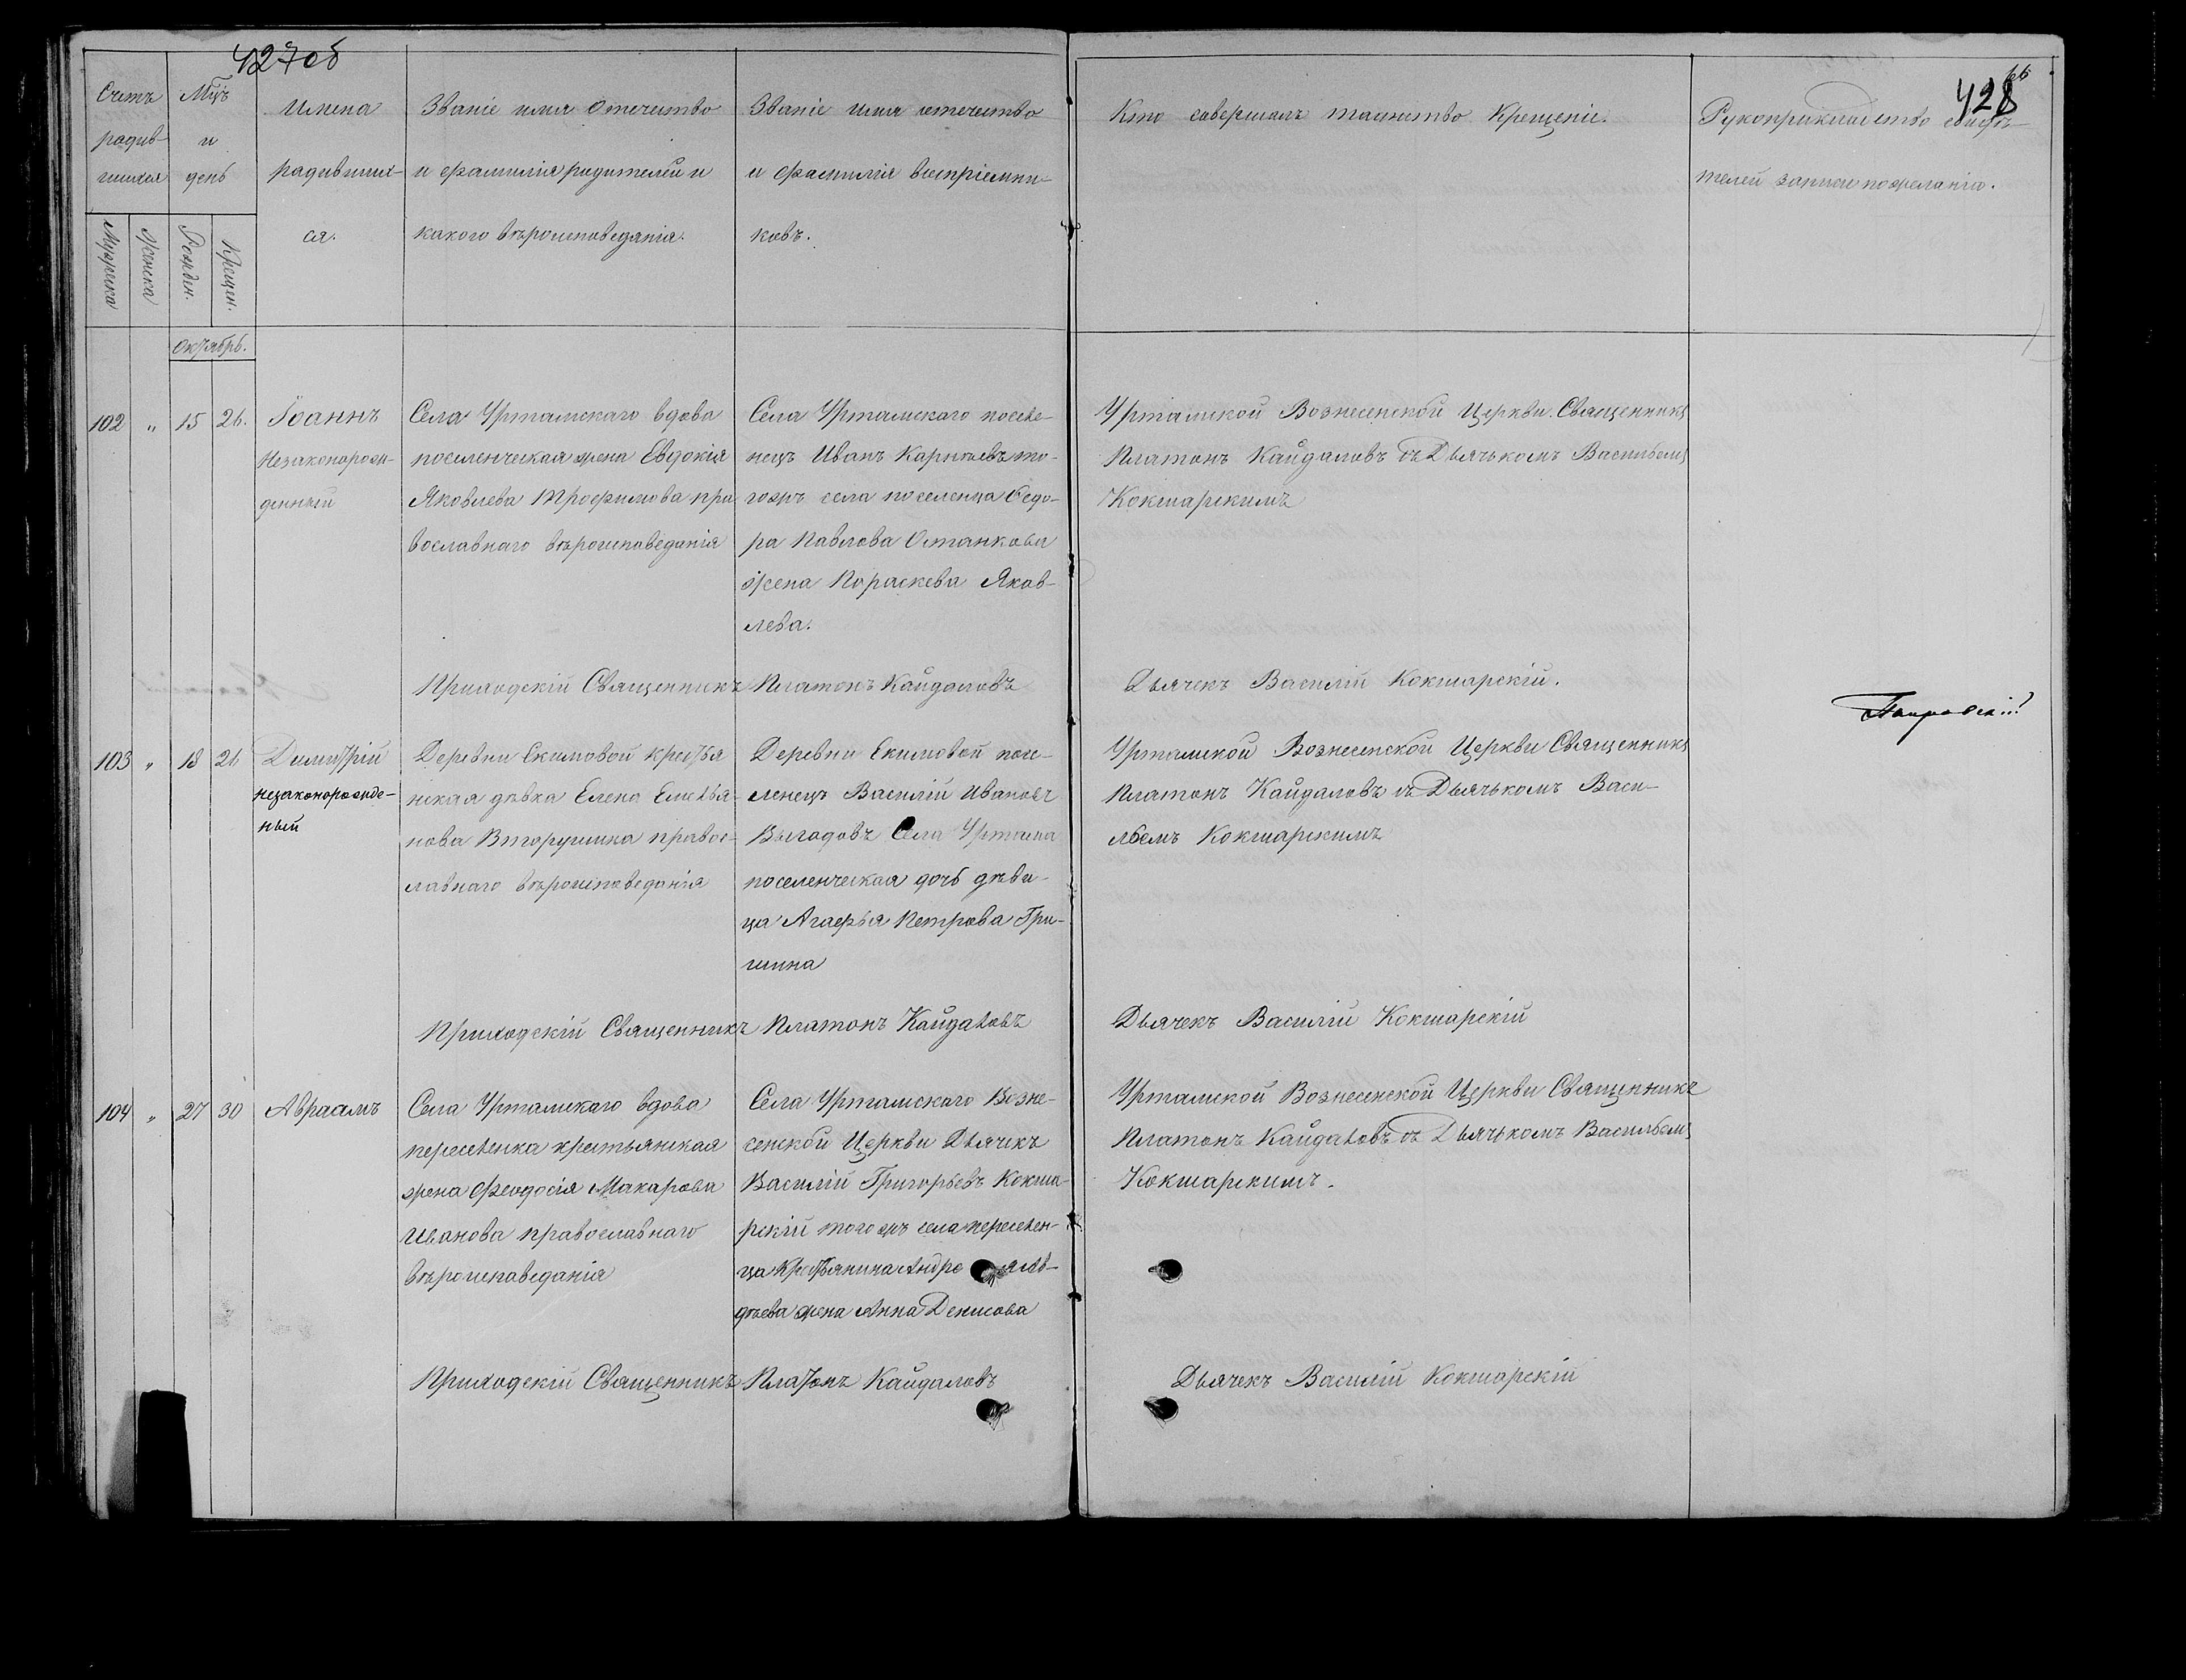 427об
428
66
Счетъ
родив-
шихся
Мужеска
Женска
Мцъ
и
день
Рожден.
Крещен.
Имена
родивших-
ся.
Званіе имя отечество
и фамилія родителей и
какого вѣроисповеданія.
Званіе имя отечество
и фамилія воспріемни-
ковъ.
Кто совершалъ таинство Крещеніе.
Рукоприкладство свидѣ-
телей записи по желанію.
Октябрь.
102 „ 15 26. Іоаннъ
Незаконорож-
денный
Села Уртамскаго вдова
поселенческая жена Евдокія
Яковлева Трофимова пра
вославнаго вѣроисповеданія
Села Уртамскаго поселе-
нецъ Иванъ Карповъ то-
гожъ села поселенца Федо-
ра Павлова Останкова
жена Пораскева Яков-
лева.
Уртамской Вознесенской Церкви Священникъ
Платонъ Кайдаловъ съ Дьячькомъ Васильемъ
Кокшарскимъ
Приходскій Священникъ Платонъ Кайдаловъ
Дьячекъ Василій Кокшарскій.
103 „ 18 26 Димитрій
незаконорожде-
ный
Деревни Екимовой кресть
янская дѣвка Елена Емелья-
нова Вторушина правос-
лавнаго вѣроисповеданія
Деревни Екимовой посе-
ленецъ Василій Ивановъ
Выгодовъ Села Уртама
поселенческая дочь дѣви-
ца Агафья Петрова Гри-
шина
Уртамской Вознесенской Церкви Священникъ
Платонъ Кайдаловъ съ Дьячькомъ Васи-
льемъ Кокшарскимъ
Приходскій Священникъ Платонъ Кайдаловъ
Дьячекъ Василій Кокшарскій
104 „ 27 30 Авраамъ
Села Уртамскаго вдова
переселенка крестьянская
жена Феодосія Макарова
Иванова православнаго
вѣроисповеданія
Села Уртамскаго Возне-
сенской Церкви Дьячекъ
Василій Григорьевъ Кокша-
рскій того жъ села переселен-
ца Крестьянина Андре
дѣева жена Анна Денисова
Уртамской Вознесенской Церкви Священникъ
Платонъ Кайдаловъ съ Дьячькомъ Васильемъ
Кокшарскимъ.
Приходскій Священникъ Платонъ Кайдаловъ
Дьячекъ Василій Кокшарскій